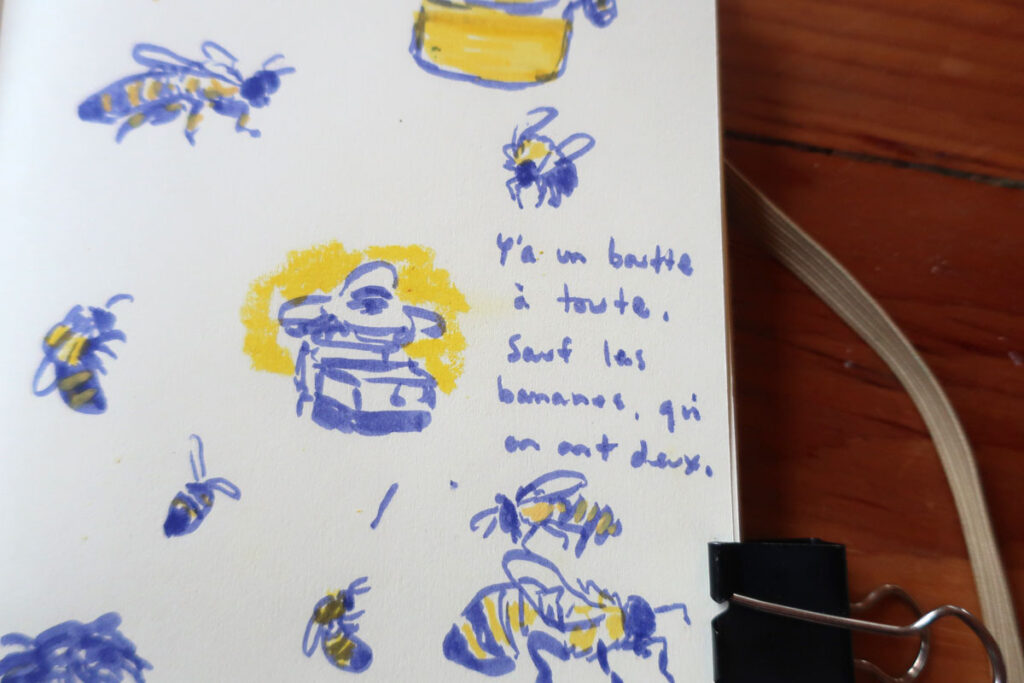 Y'a un boutte
à toute.
Sauf les
bananes, qui
en ont deux.